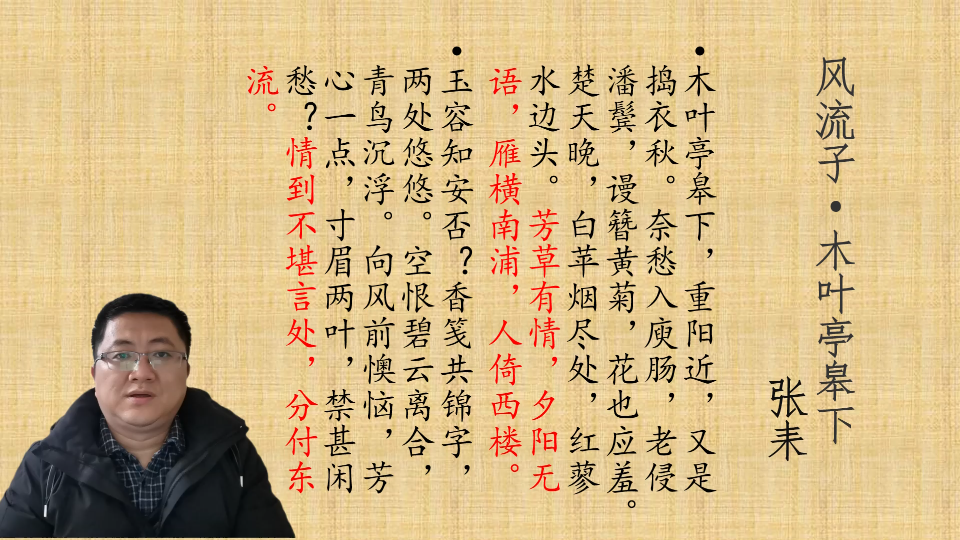 风流子•木叶亭皋下
张耒
•木叶亭皋下，重阳近，又是
捣衣秋。奈愁入庾肠，老侵
潘鬓，谩簪黄菊，花也应羞。
楚天晚，白苹烟尽处，红蓼
水边头。芳草有情，夕阳无
语，雁横南浦，人倚西楼。
•玉容知安否？香笺共锦字，
两处悠悠。空恨碧云离合，
青鸟沉浮。向风前懊恼，芳
心一点，寸眉两叶，禁甚闲
愁？情到不堪言处，分付东
流。